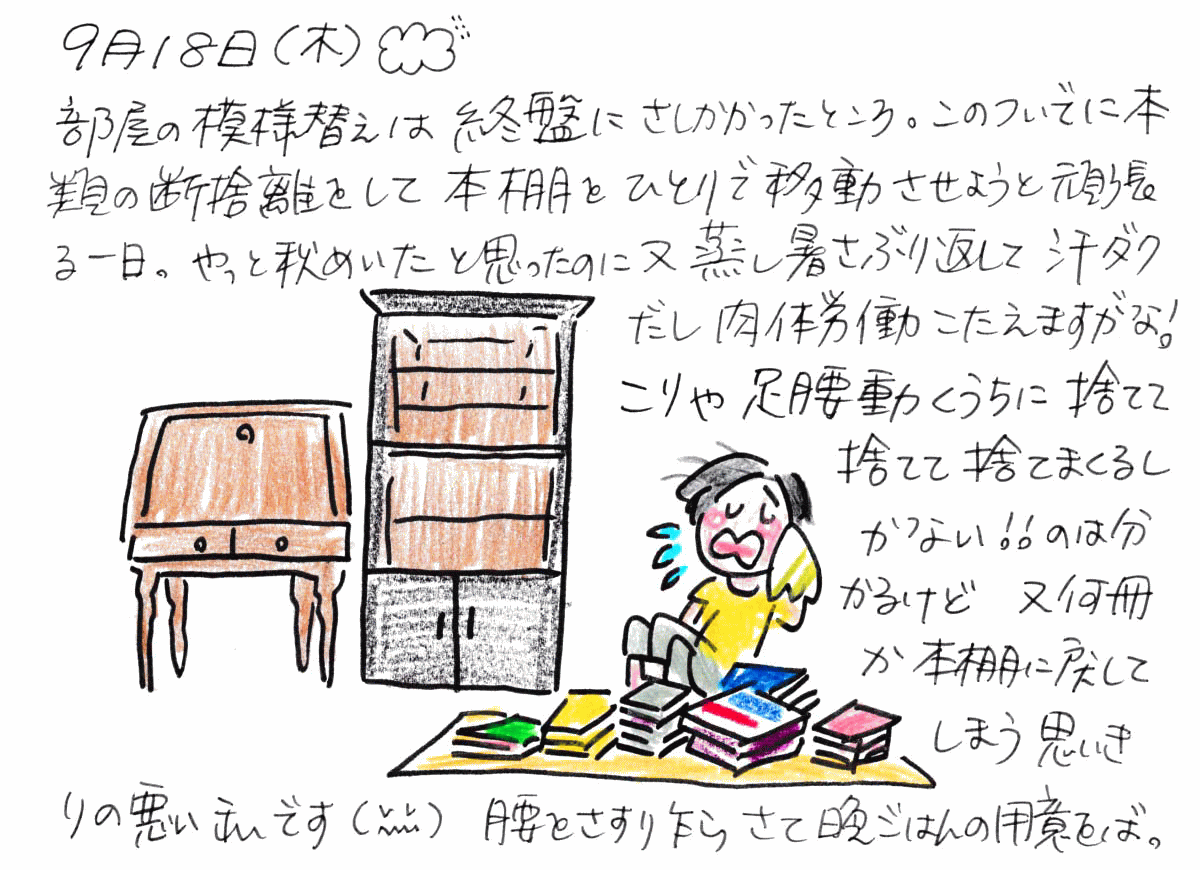 9月18日(木)
部屋の模様替えは終盤にさしかかったところ。このついでに本
類の断捨離をして本棚をひとりで移動させようと頑張
る一日。やっと秋めいたと思ったのに又蒸し暑さぶり返して汗ダク
だし肉体労働こたえますがな!
こりゃ足腰動くうちに捨てて
捨てて捨てまくるし
かない!!のは分
かるけど 又何冊
か本棚に戻して
しまう思いき
りの悪い私です(;;;;) 腰をさすり乍らさて晩ごはんの用意をば。